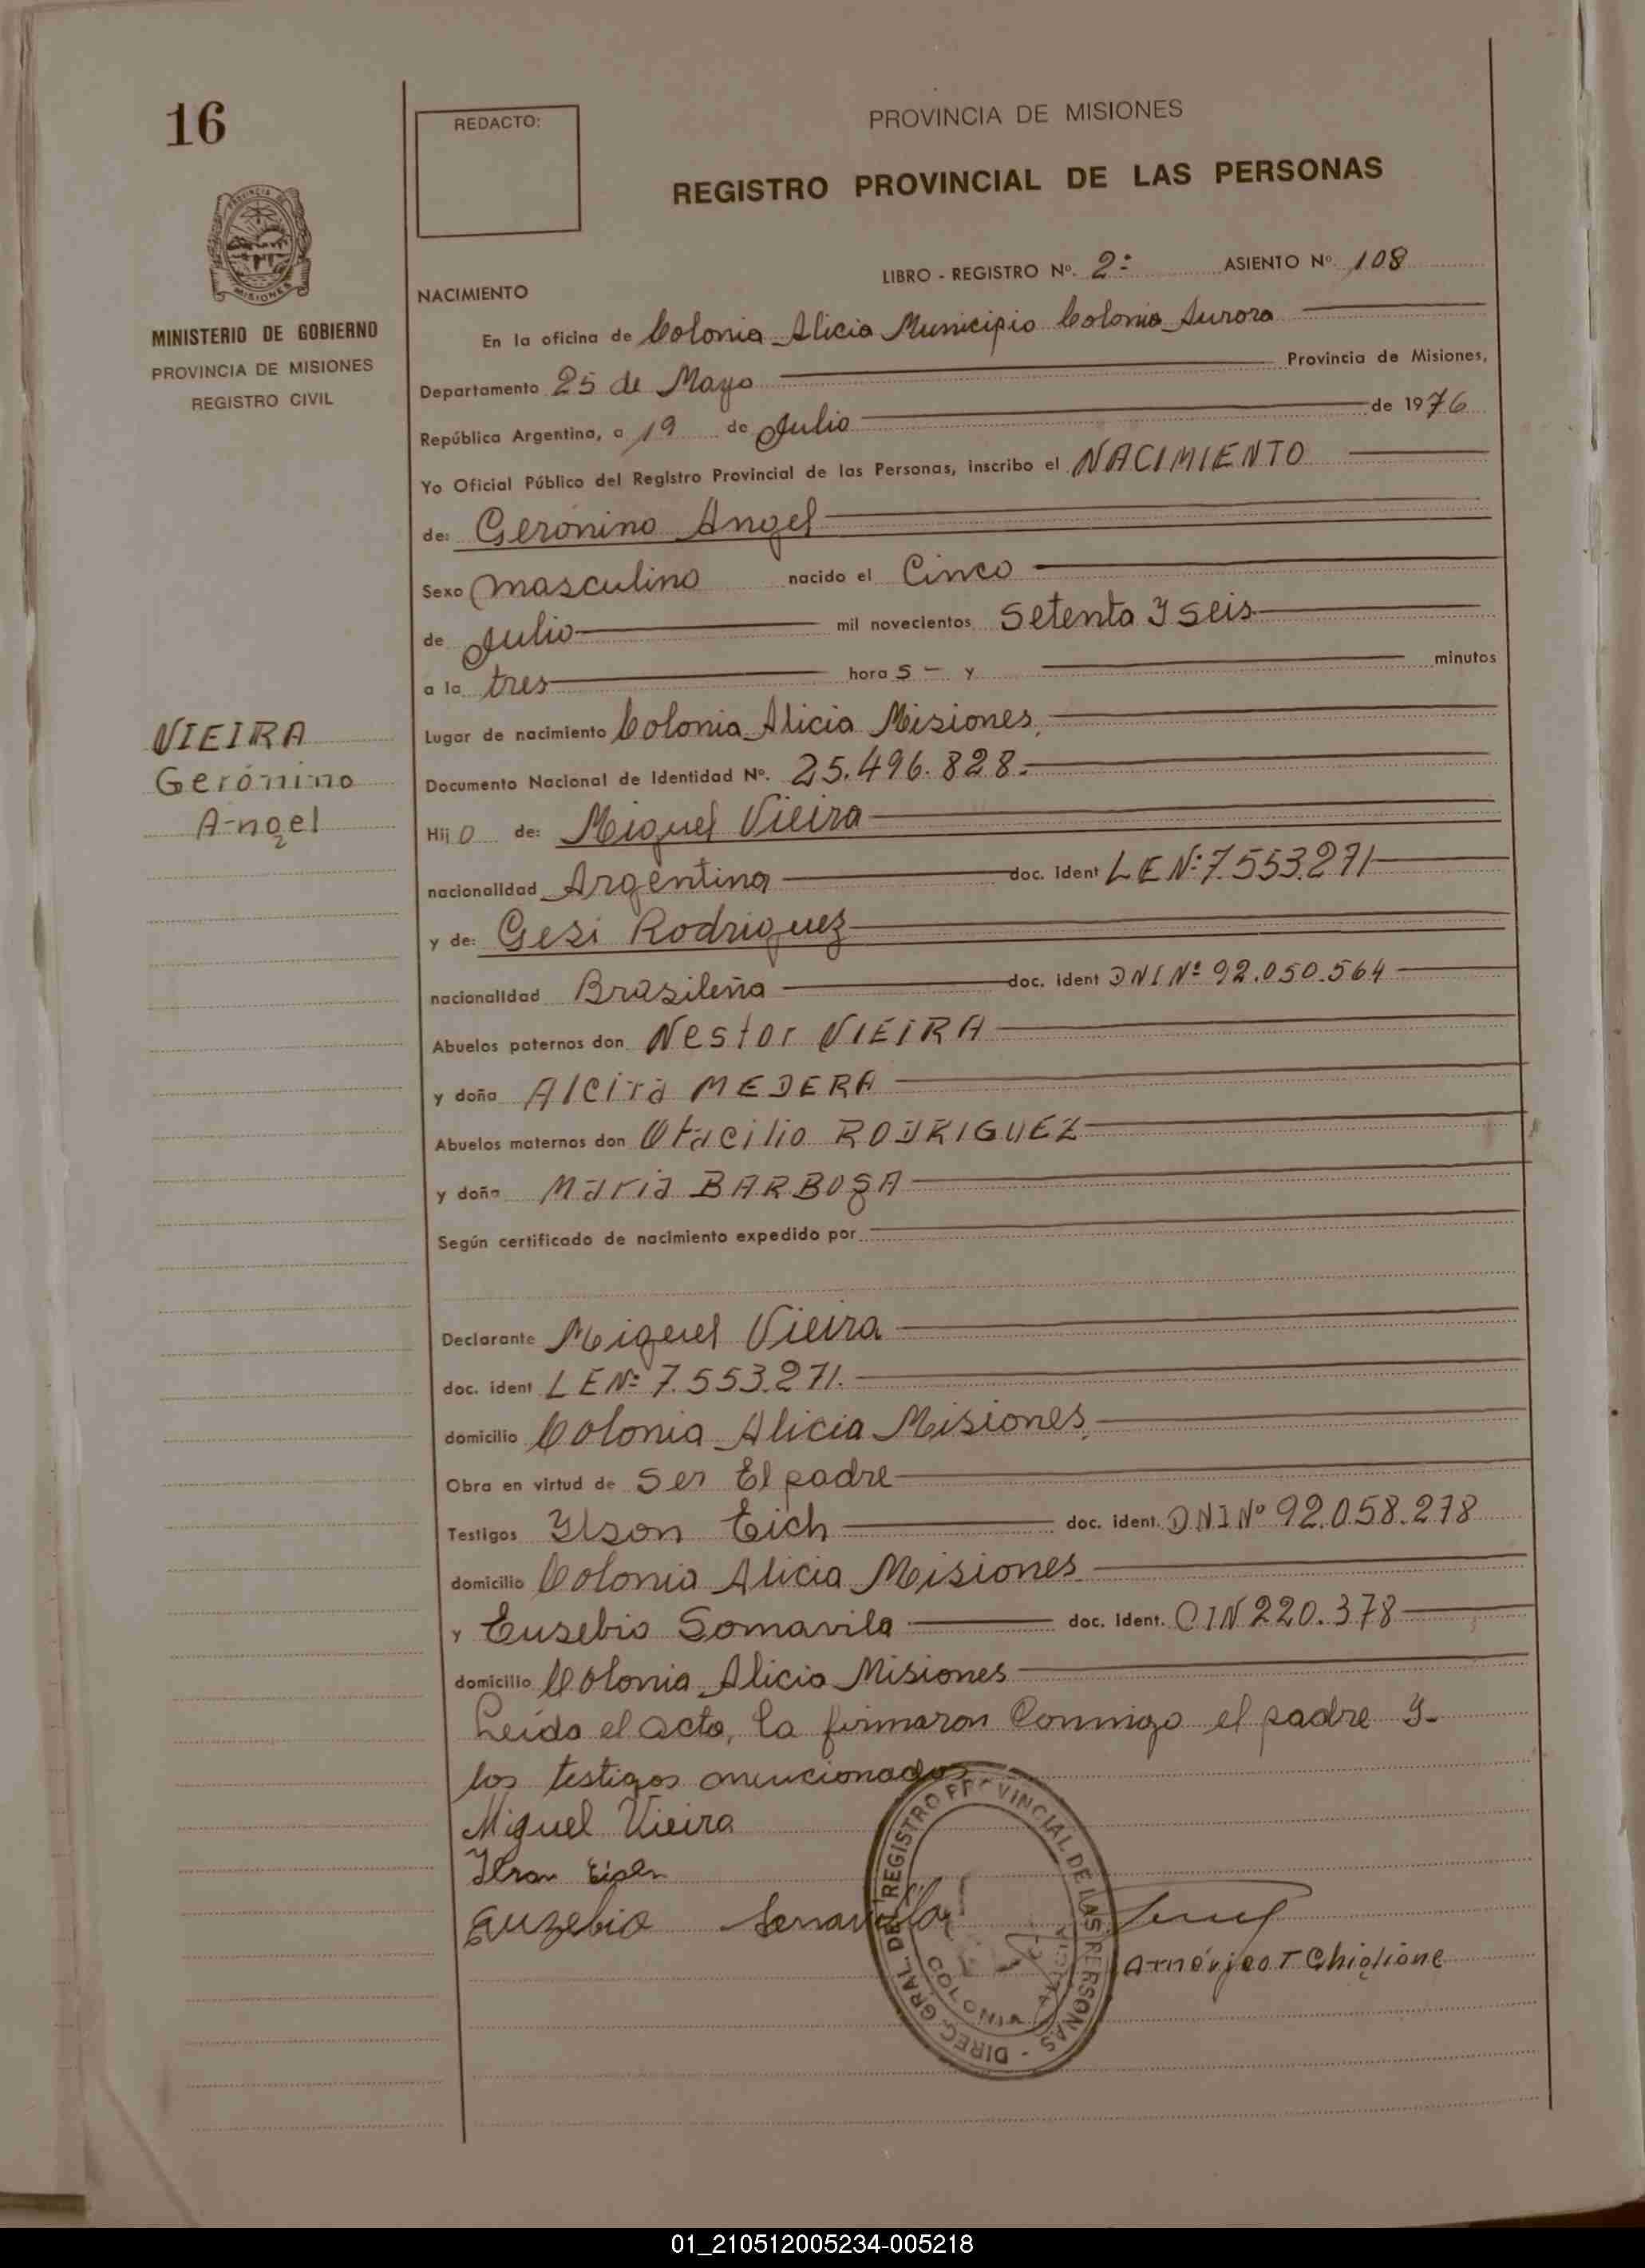 16
REDACTO:
PROVINCIA DE MISIONES
REGISTRO PROVINCIAL DE LAS PERSONAS
PROVINCIA
MISIONES
MINISTERIO DE GOBIERNO
PROVINCIA DE MISIONES
REGISTRO CIVIL
LIBRO - REGISTRO Nº. 2º ASIENTO Nº 108
NACIMIENTO
En la oficina de Colonia Alicia Municipio Colonia Aurora
Departamento 25 de Mayo Provincia de Misiones,
República Argentina, a 19 de Julio de 1976
Yo Oficial Público del Registro Provincial de las Personas, inscribo el NACIMIENTO
de: Gerónino Angel
Sexo masculino nacido el Cinco
de Julio mil novecientos Setenta y Seis
a la tres hora s - y minutos
Lugar de nacimiento Colonia Alicia Misiones,
VIEIRA
Gerónino
Angel
Documento Nacional de Identidad Nº. 25.496.828.-
Hijo de: Miguel Vieira
nacionalidad Argentina doc. ident LE Nº 7.553.271
y de: Gesi Rodriguez
nacionalidad Brasileña doc. ident DNI Nº 92.050.564
Abuelos paternos don Nestor VIEIRA
y doña Alcira MEDERA
Abuelos maternos don Otacilio RODRIGUEZ
y doña Maria BARBOSA
Según certificado de nacimiento expedido por
Declarante Miguel Vieira
doc. ident LE Nº 7.553.271.
domicilio Colonia Alicia Misiones,
Obra en virtud de Ser El padre
Testigos Ylson Eich doc. ident. DNI Nº 92.058.278
domicilio Colonia Alicia Misiones
y Eusebio Somavila doc. ident. CIN 220.378
domicilio Colonia Alicia Misiones
Leida el acta, la firmaron Conmigo el padre y
los testigos mencionados
Miguel Vieira
Euzebio
DIREC. GRAL. DEL REGISTRO PROVINCIAL DE LAS PERSONAS -
COLONIA ALICIA
Chiglione
01_210512005234-005218